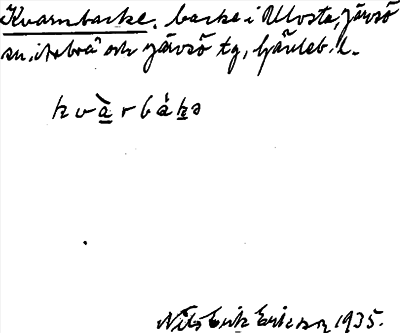 Kvarnbacke, backe i Ulvsta, Järvsö
sn, Arbrå och Järvsö tg, Gävleb. l.
kvàrbákə
Nils Erik Ericson 1935.